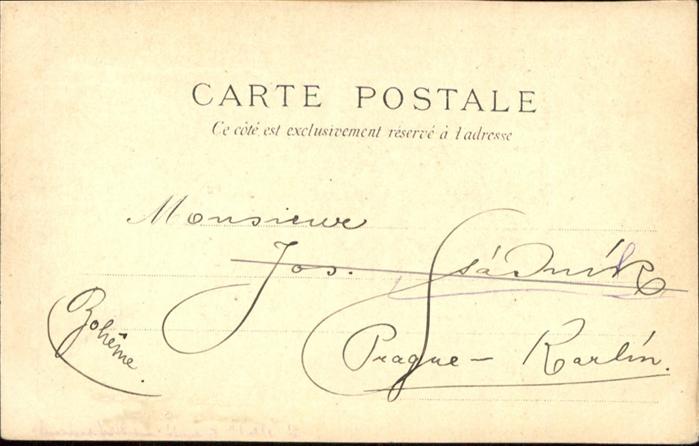 CARTE POSTALE
Ce côté est exclusivement réservé à l'adresse
Monsieur
Jos.
Prague - Karlín.
Bohême.